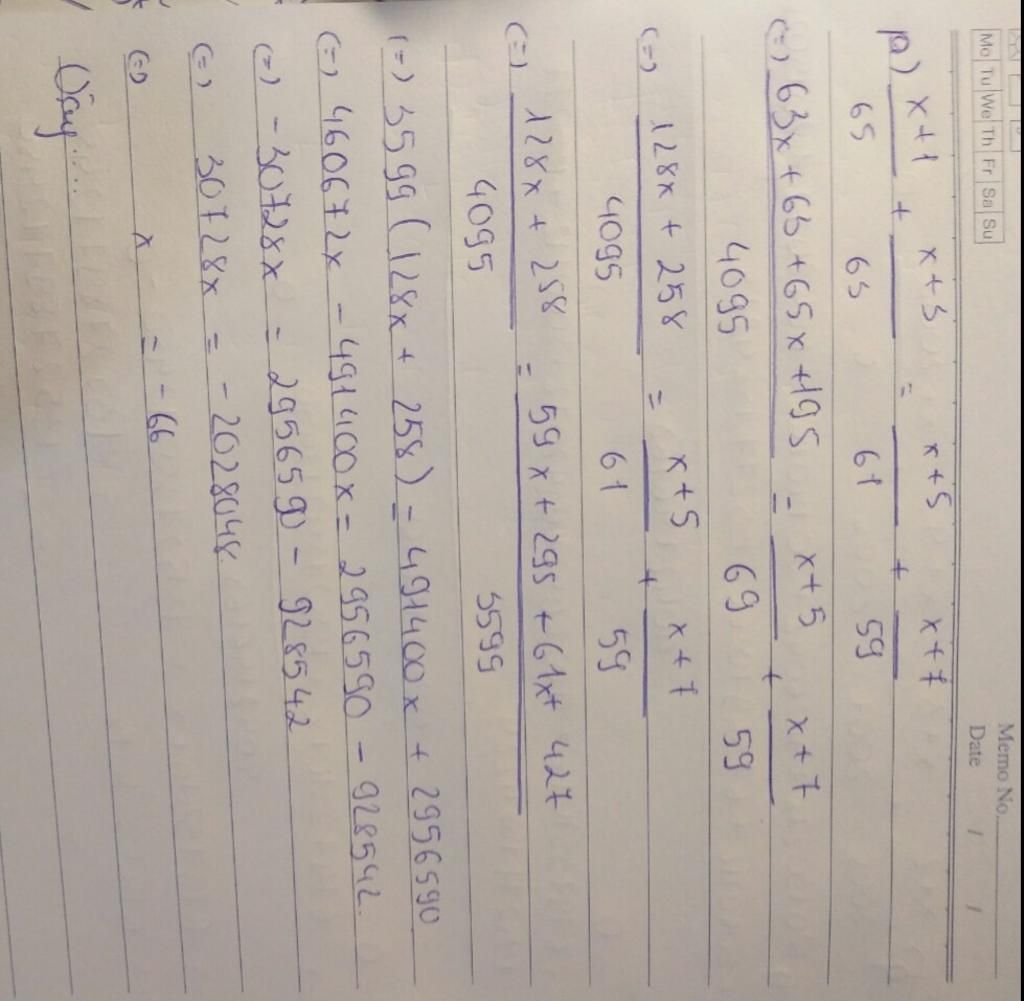 Memo No.
Mo Tu We Th Fr Sa Su Date / /
p) x+1 + x+3 = x+5 + x+7
65 63 61 59
(=) 63x + 63 + 65x + 195 = x+5 + x+7
4095 69 59
(=) 128x + 258 = x+5 + x+7
4095 61 59
(=) 128x + 258 = 59x + 295 + 61x + 427
4095 3599
(=) 3599 (128x + 258) = 491400x + 2956590
(=) 460672x - 491400x = 2956590 - 928542.
(=) - 30728x = 2956590 - 928542
(=) 30728x = - 2028048.
(=) x = - 66
Vậy....